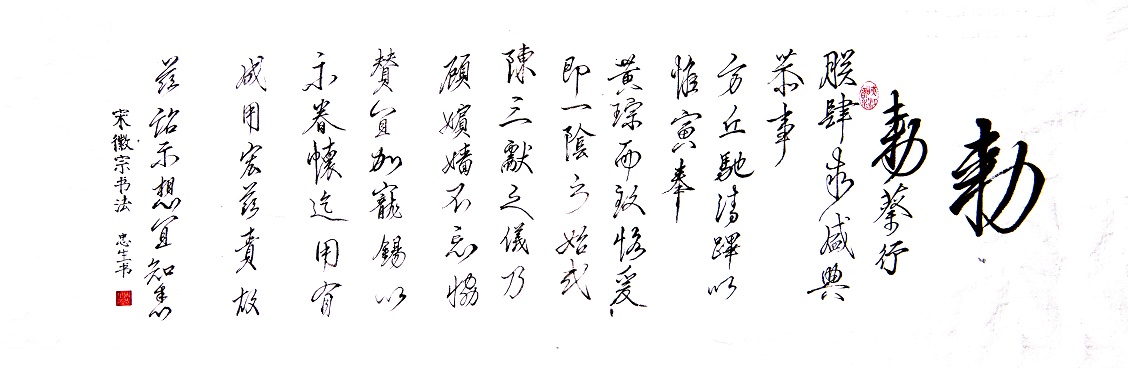 勅
勅蔡行
朕肆求盛典
恭事
方丘馳清蹕以
惟寅奉
黄琮而致恪爰
即一陰之始式
陳三獻之儀乃
顧嬪嬙不忘恊
賛宜加寵錫以
示眷懷迄用有
成用宏兹賁故
兹詔示想宜知悉
宋徽宗书法 忠生书